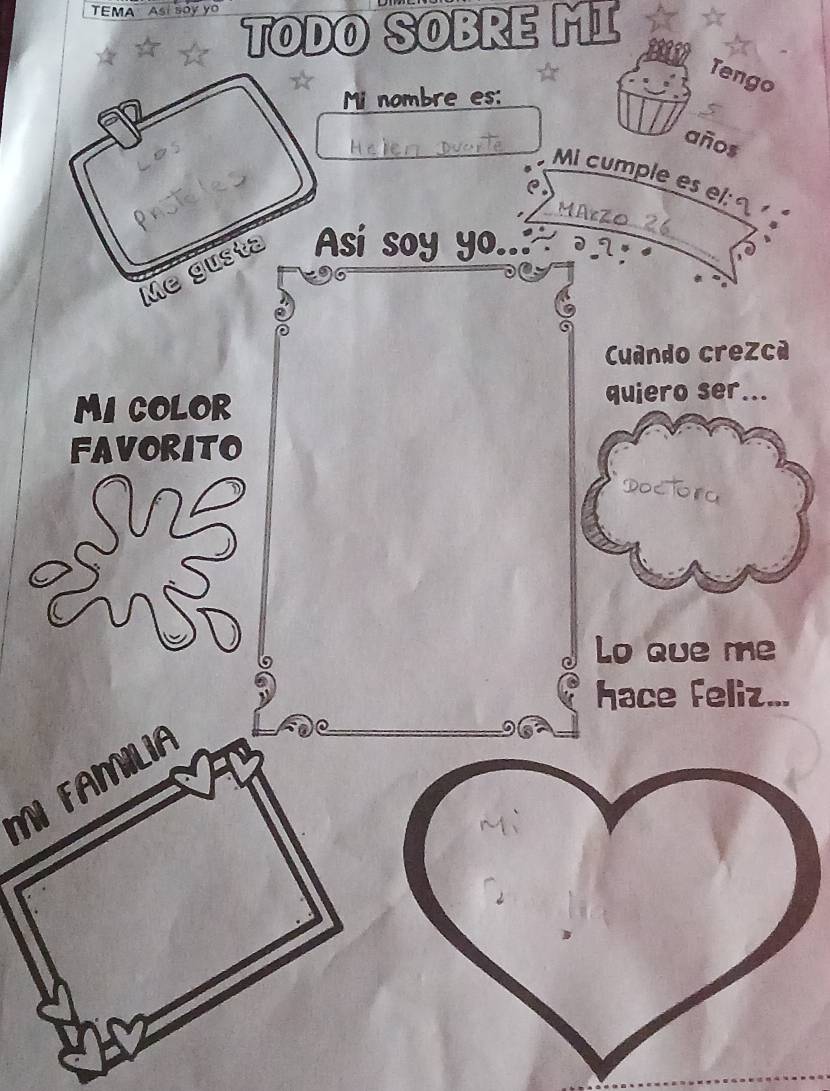 TEMA Asi soy yo
TODO SOBRE MI
Tengo
5
años
Mi nombre es:
Helen Duarte
Mi cumple es el:
MARZO 26
Los
Pasteles
Me gusta
Así soy yo...
Cuando crezca
quiero ser...
Doctora
MI COLOR
FAVORITO
Lo que me
hace feliz...
Mi
MI FAMILIA